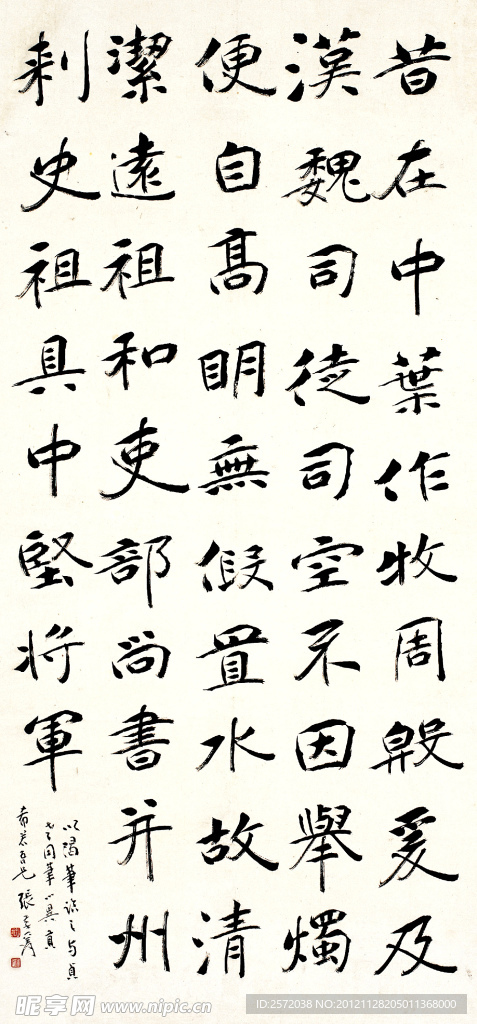 昔在中葉作牧周殷爰及
漢魏司徒司空不因舉燭
便自高明無假置水故清
潔遠祖和吏部尚書并州
刺史祖具中堅將軍
以渴筆臨之与
同筆
張
昵享网 www.nipic.cn
ID:2572038 NO:20121128205011368000